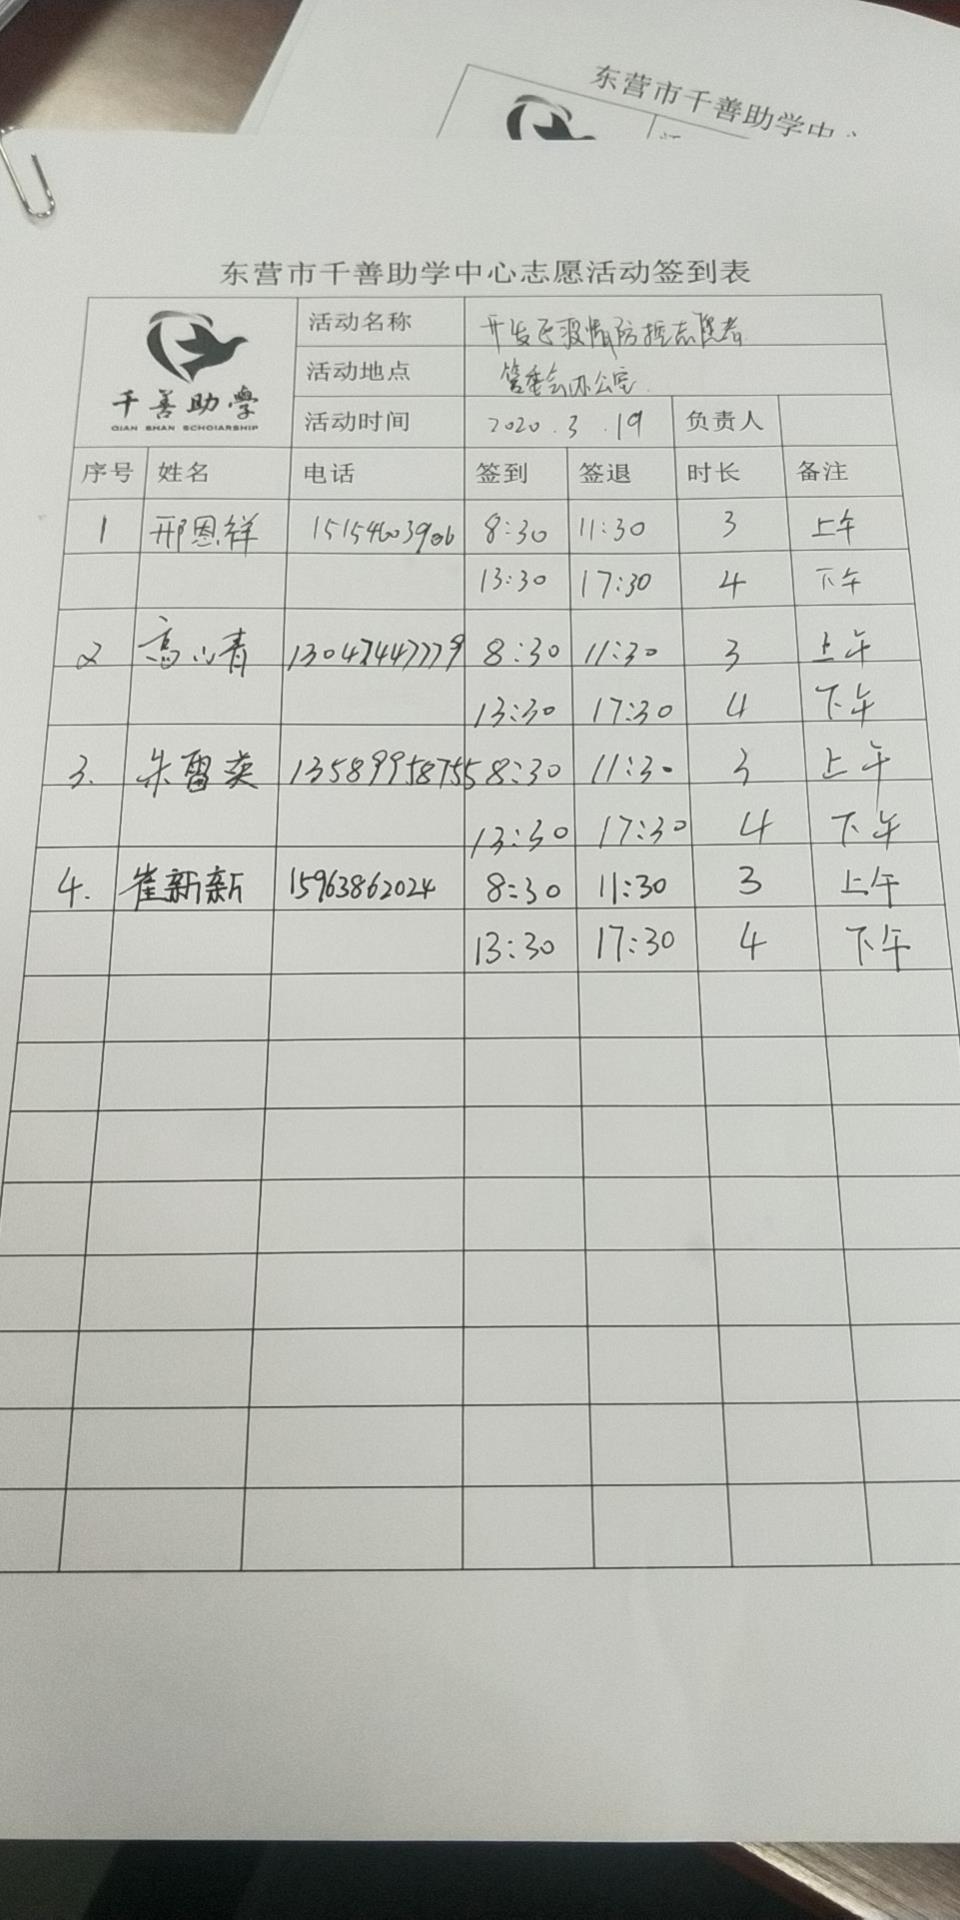 东营市千善助学中心
东营市千善助学中心志愿活动签到表
千善助学
QIAN SHAN SCHOLARSHIP
活动名称 开发区疫情防控志愿者
活动地点 管委会办公室
活动时间 2020.3.19 负责人
序号 姓名 电话 签到 签退 时长 备注
1 邢恩祥 15154603906 8:30 11:30 3 上午
13:30 17:30 4 下午
2 高小青 13047447779 8:30 11:30 3 上午
13:30 17:30 4 下午
3. 朱雷英 13589958755 8:30 11:30 3 上午
13:30 17:30 4 下午
4. 崔新新 15963862024 8:30 11:30 3 上午
13:30 17:30 4 下午